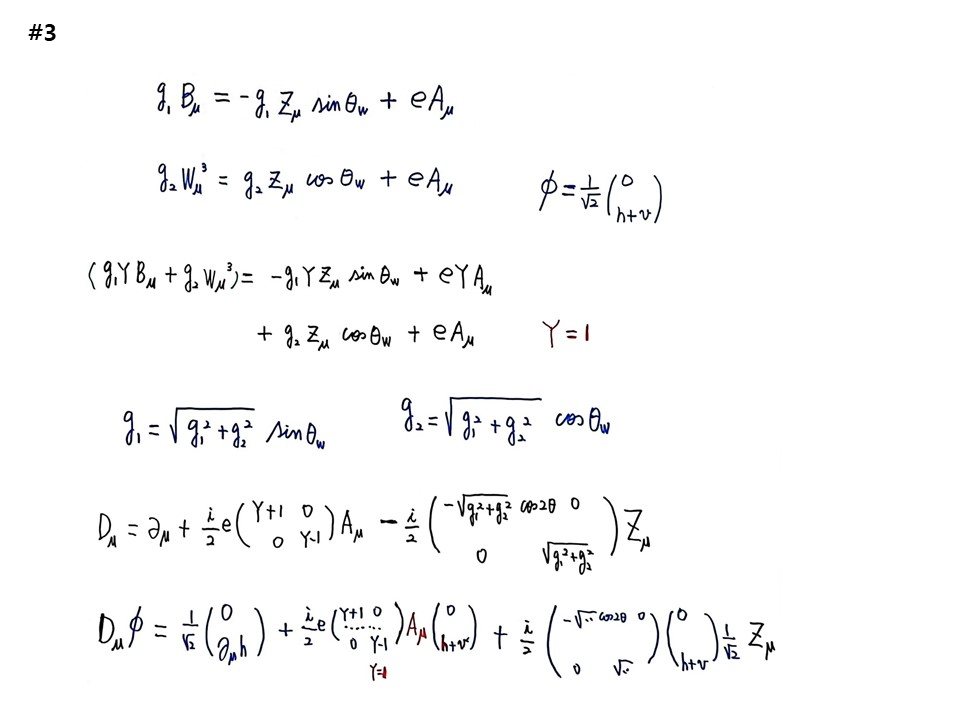 #3
g₁ B_μ = - g₁ Z_μ sin θ_w + e A_μ
g₂ W_μ³ = g₂ Z_μ cos θ_w + e A_μ
ϕ = 1/√2 (0 / h+v)
(g₁ Y B_μ + g₂ W_μ³) = - g₁ Y Z_μ sin θ_w + e Y A_μ
+ g₂ Z_μ cos θ_w + e A_μ Y = 1
g₁ = √(g₁² + g₂²) sin θ_w g₂ = √(g₁² + g₂²) cos θ_w
D_μ = ∂_μ + i/2 e (Y+1 0 / 0 Y-1) A_μ - i/2 (-√(g₁²+g₂²) cos2θ 0 / 0 √(g₁²+g₂²)) Z_μ
D_μ ϕ = 1/√2 (0 / ∂_μ h) + i/2 e (Y+1 0 / 0 Y-1) A_μ (0 / h+v) + i/2 (-√.. cos2θ 0 / 0 √..) (0 / h+v) 1/√2 Z_μ
Y=1